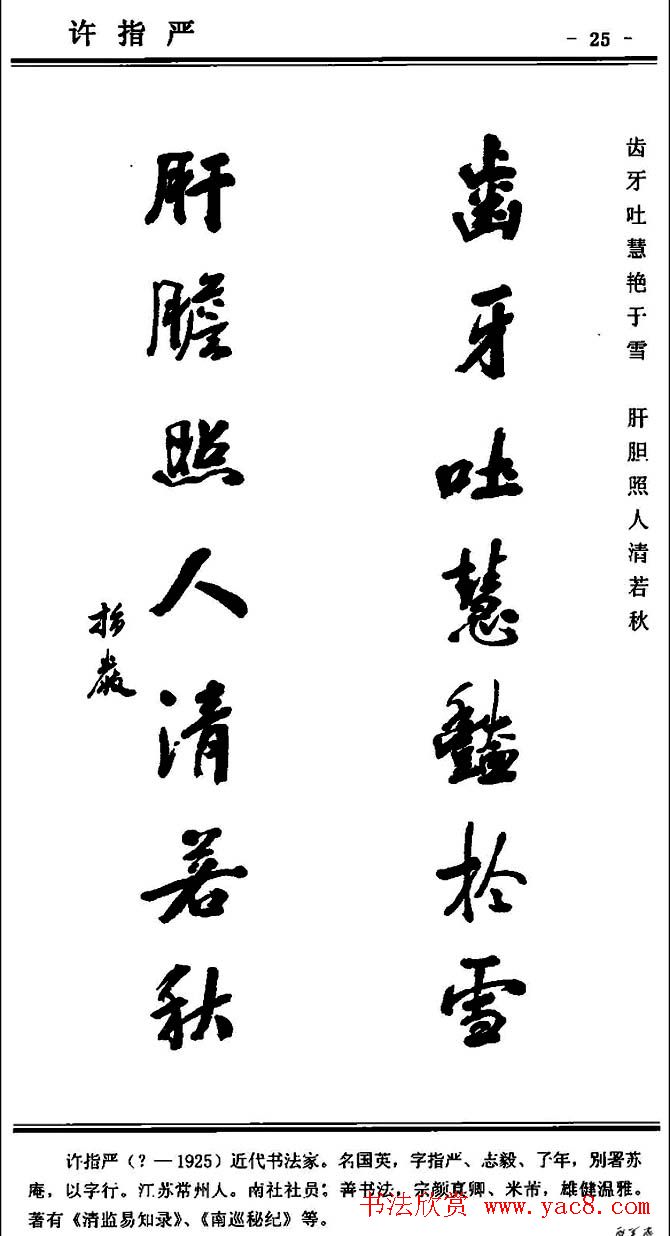 许指严
- 25 -
齿牙吐慧艳于雪 肝胆照人清若秋
齒牙吐慧豔於雪
肝膽照人清若秋
指嚴
许指严（？—1925）近代书法家。名国英，字指严、志毅、了年，别署苏
庵，以字行。江苏常州人。南社社员；善书法，宗颜真卿、米芾，雄健温雅。
著有《清监易知录》、《南巡秘纪》等。
书法欣赏 www.yac8.com